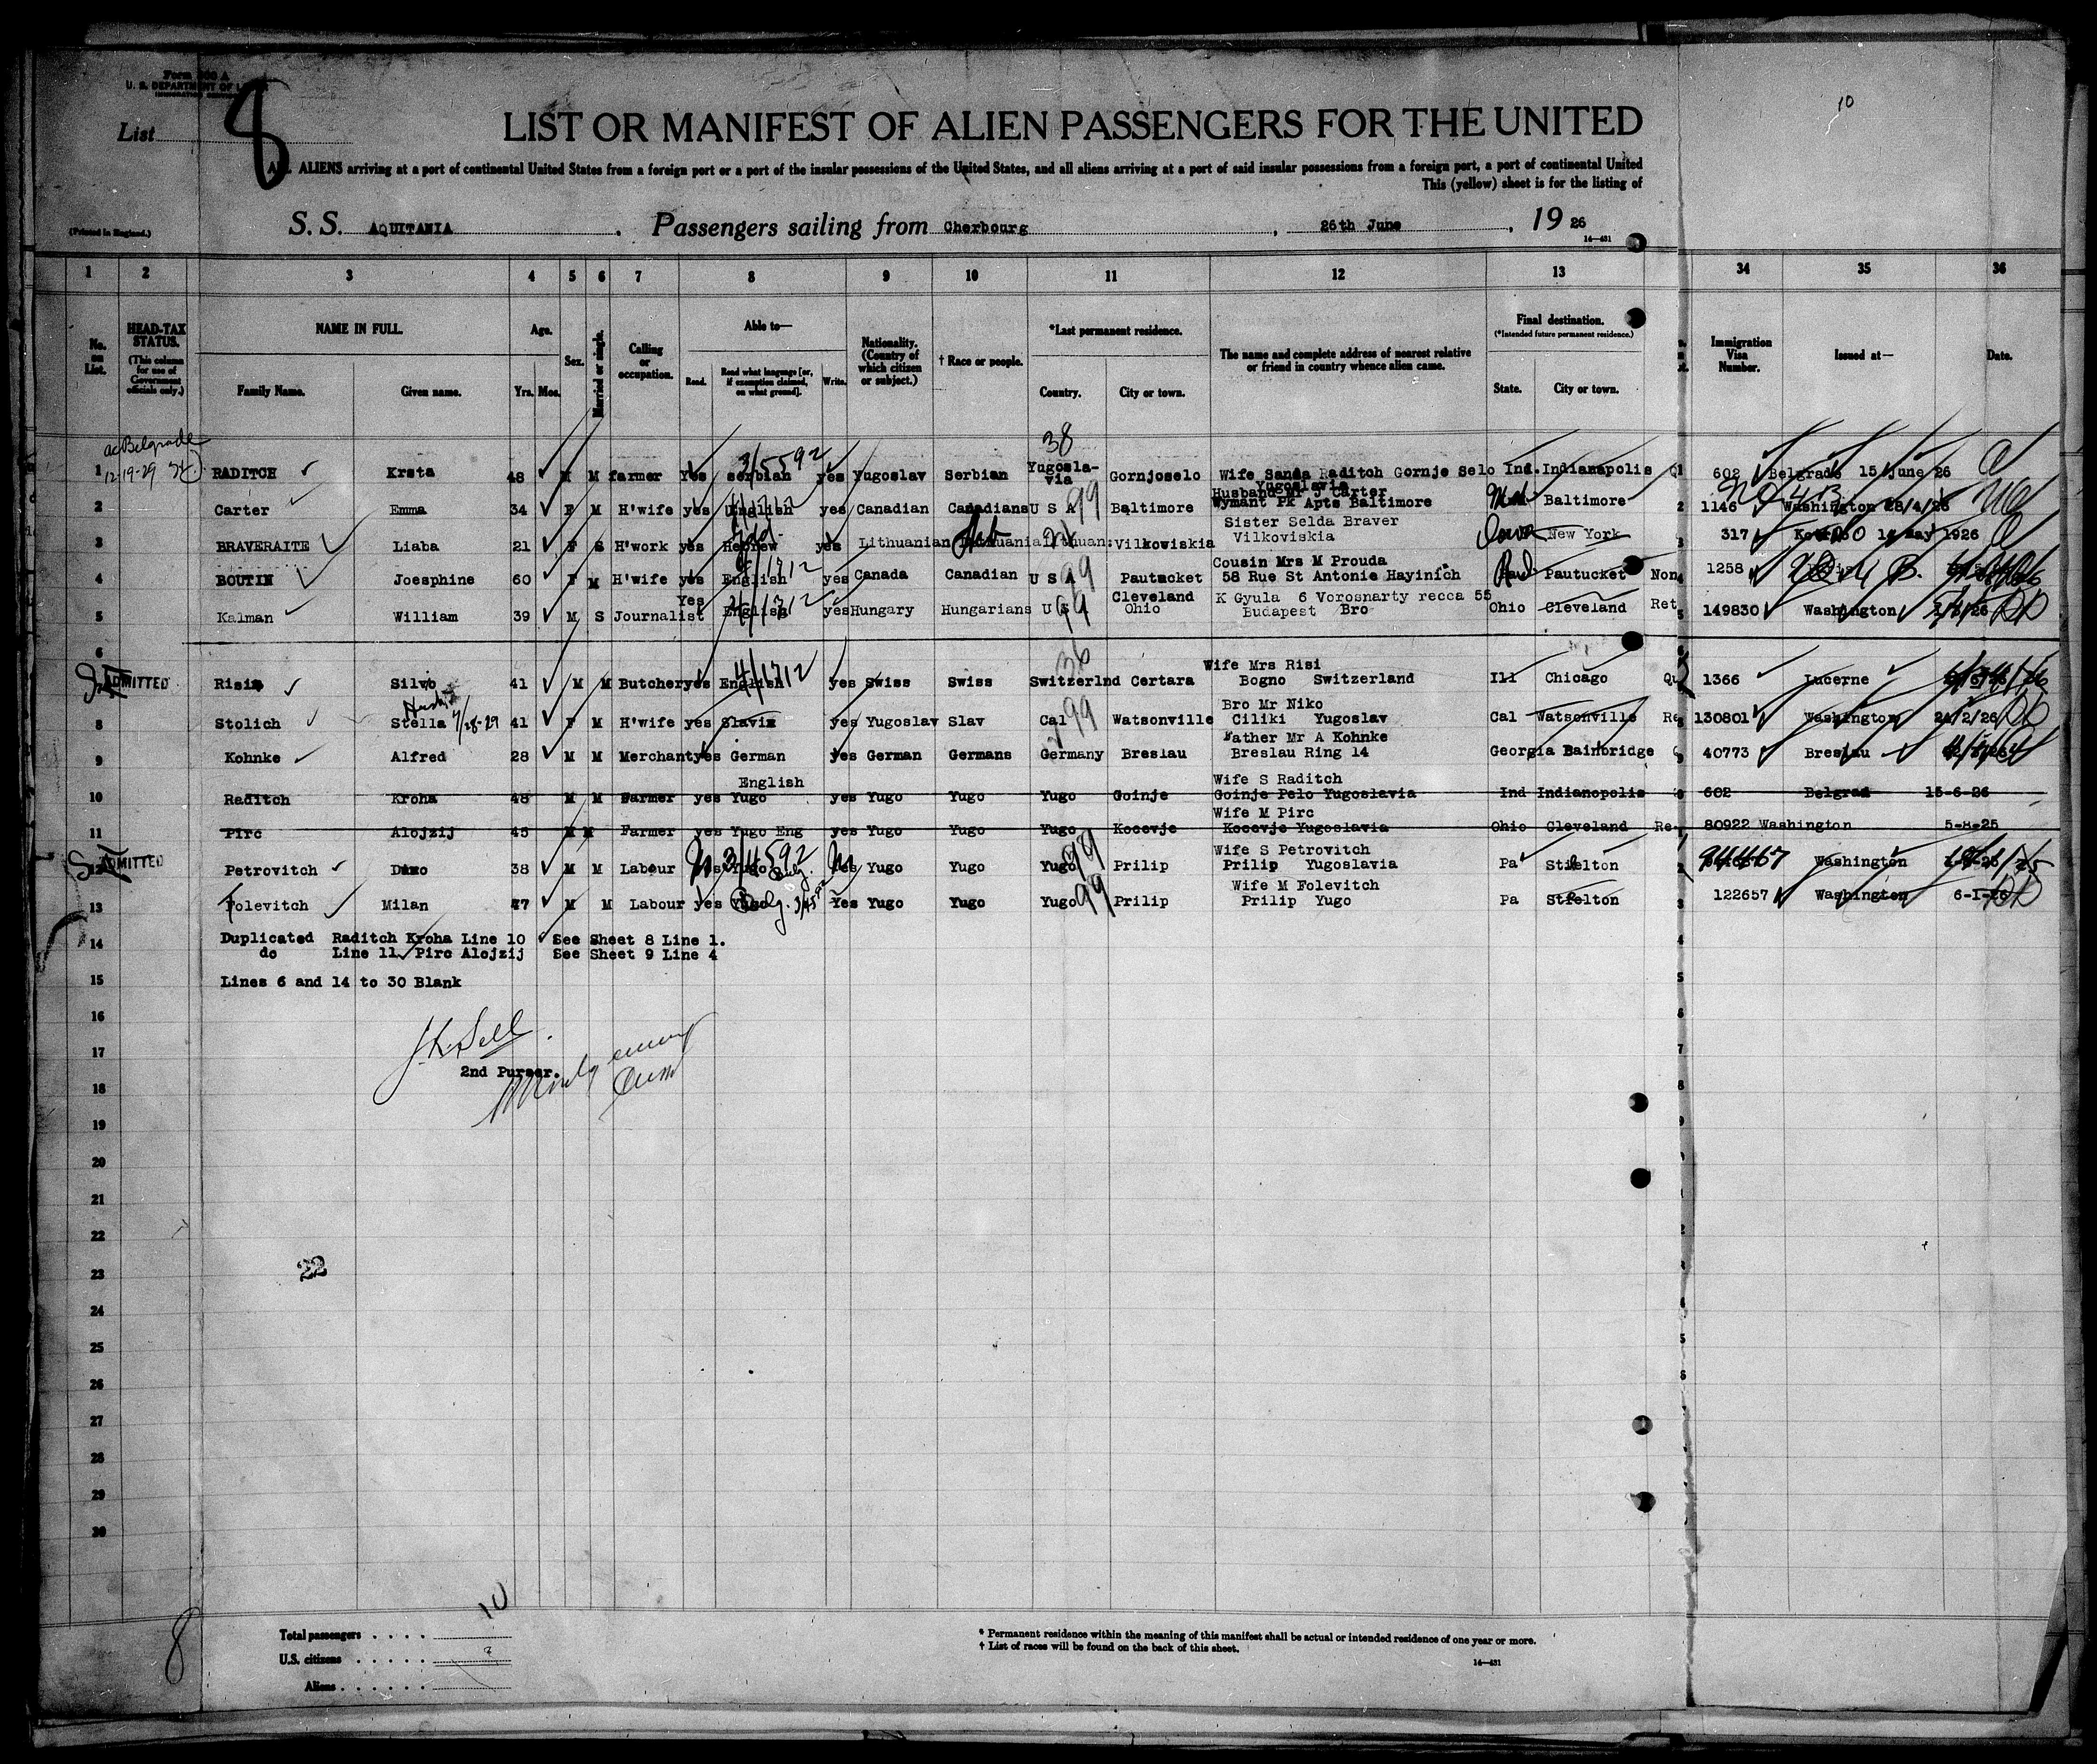 Form 500 A
U. S. DEPARTMENT OF
List 8
10
LIST OR MANIFEST OF ALIEN PASSENGERS FOR THE UNITED
ALL ALIENS arriving at a port of continental United States from a foreign port or a port of the insular possessions of the United States, and all aliens arriving at a port of said insular possessions from a foreign port, a port of continental United
This (yellow) sheet is for the listing of
(Printed in England.)
S. S. AQUITANIA. Passengers sailing from Cherbourg, 26th June, 19 26
14—431
1 2 3 4 5 6 7 8 9 10 11 12 13 34 35 36
No. on List. HEAD-TAX STATUS. (This column for use of Government officials only.) NAME IN FULL. Family Name. Given name. Age. Yrs. Mos. Sex. Married or single. Calling or occupation. Able to— Read. Read what language [or, if exemption claimed, on what ground]. Write. Nationality. (Country of which citizen or subject.) † Race or people. *Last permanent residence. Country. City or town. The name and complete address of nearest relative or friend in country whence alien came. Final destination. (*Intended future permanent residence.) State. City or town. Immigration Visa Number. Issued at— Date.
Belgrade 12-19-29
38
1 RADITCH Krsta 48 M M farmer Yes serbian 3/5592 yes Yugoslav Serbian Yugosla-via Gornjoselo Wife Sanda Raditch Gornje Selo Yugoslavia Ind. Indianapolis 602 Belgrade 15 June 26
2 Carter Emma 34 F M H'wife yes English yes Canadian Canadians U S A 99 Baltimore Husband Mr J Carter Wymant Pk Apts Baltimore Md Baltimore 1146 Washington 28/4/26
3 BRAVERAITE Liaba 21 F S H'work yes Hebrew yes Lithuanian Heb Vilkowiskia Sister Selda Braver Vilkoviskia New York 317 1926
4 BOUTIN Joesphine 60 F M H'wife yes English 4/1712 yes Canada Canadian U S A 99 Pautucket Cousin Mrs M Prouda 58 Rue St Antonie Hayinich Pautucket Non 1258
5 Kalman William 39 M S Journalist Yes English 4/1712 yes Hungary Hungarians U S 99 Cleveland Ohio K Gyula 6 Vorosnarty recca 55 Budapest Bro Ohio Cleveland Ret 149830 Washington
6
ADMITTED Risi Silvo 41 M M Butcher yes English 4/1712 yes Swiss Swiss Switzerlnd 36 Certara Wife Mrs Risi Bogno Switzerland Ill Chicago 1366 Lucerne
8 Stolich Stella 7/28-29 41 F M H'wife yes Slavix yes Yugoslav Slav Cal 99 Watsonville Bro Mr Niko Ciliki Yugoslav Cal Watsonville Re 130801 Washington 24/2/26
9 Kohnke Alfred 28 M M Merchant yes German yes German Germans Germany Breslau Father Mr A Kohnke Breslau Ring 14 Georgia Bainbridge 40773 Breslau
10 Raditch Kroha 48 M M Farmer yes Yugo English yes Yugo Yugo Yugo Goinje Wife S Raditch Goinje Pelo Yugoslavia Ind Indianopolis 602 Belgrad 15-6-26
11 Pirc Alojzij 45 M M Farmer yes Yugo Eng yes Yugo Yugo Yugo Kocevje Wife M Pirc Kocevje Yugoslavia Ohio Cleveland Re 80922 Washington 5-8-25
ADMITTED 12 Petrovitch 38 M M Labour Yugo yes Yugo Yugo Yugo 99 Prilip Wife S Petrovitch Prilip Yugoslavia Pa Stielton Washington
13 Folevitch Milan 47 M M Labour yes Yugo Yes Yugo Yugo Yugo 99 Prilip Wife M Folevitch Prilip Yugo Pa Stielton 122657 Washington 6-I-26
14 Duplicated Raditch Kroha Line 10 See Sheet 8 Line 1.
do Line 11 Pirc Alojzij See Sheet 9 Line 4
15 Lines 6 and 14 to 30 Blank
16
17
2nd Purser.
18
19
20
21
22
23 22
24
25
26
27
28
29
30
10
8
Total passengers
U.S. citizens
Aliens
* Permanent residence within the meaning of this manifest shall be actual or intended residence of one year or more.
† List of races will be found on the back of this sheet.
14—431